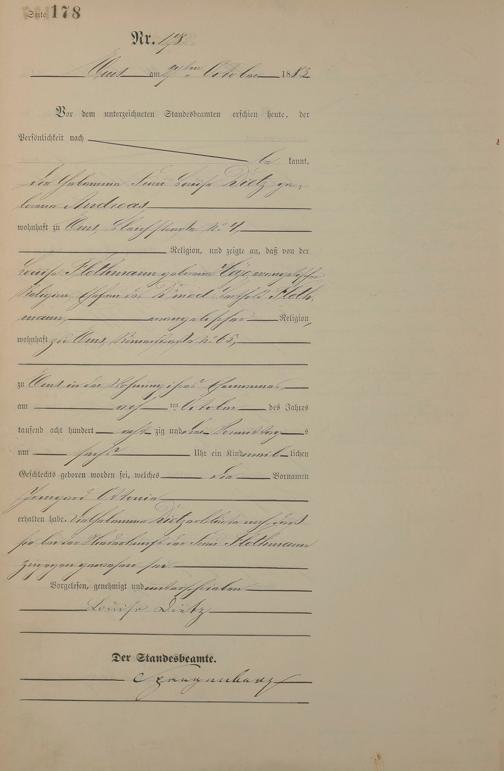 Seite 178
Nr. 178
Ems am October 188
Vor dem unterzeichneten Standesbeamten erschien heute, der
Persönlichkeit nach
be kannt,
die Hebamme Frau Louise Dietz ge-
borene Andreas
wohnhaft zu Ems, No 4,
Religion, und zeigte an, daß von der
Louise Flothmann geborene evangelischer
Religion, Ehefrau des Floth
mann, evangelischer Religion,
wohnhaft zu Ems, No 65,
zu Ems in der Wohnung ihres Ehemannes
am ten October des Jahres
tausend acht hundert acht zig und Vormittags
um sechs Uhr ein Kind weib lichen
Geschlechts geboren worden sei, welches die Vornamen
Irmgard
erhalten habe. Die Hebamme Dietz erklärte noch daß
sie bei der Niederkunft der Frau Flothmann
zugegen gewesen sei
Vorgelesen, genehmigt und unterschrieben
Louise Dietz
Der Standesbeamte.